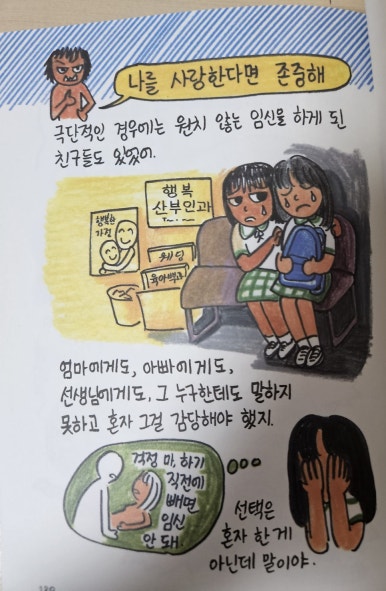 나를 사랑한다면 존중해
극단적인 경우에는 원치 않는 임신을 하게 된
친구들도 있었어.
행복
산부인과
행복한
가정
웨딩
육아백과
엄마에게도, 아빠에게도,
선생님에게도, 그 누구한테도 말하지
못하고 혼자 그걸 감당해야 했지.
걱정 마, 하기
직전에
빼면
임신
안 돼.
선택은
혼자 한 게
아닌데 말이야.